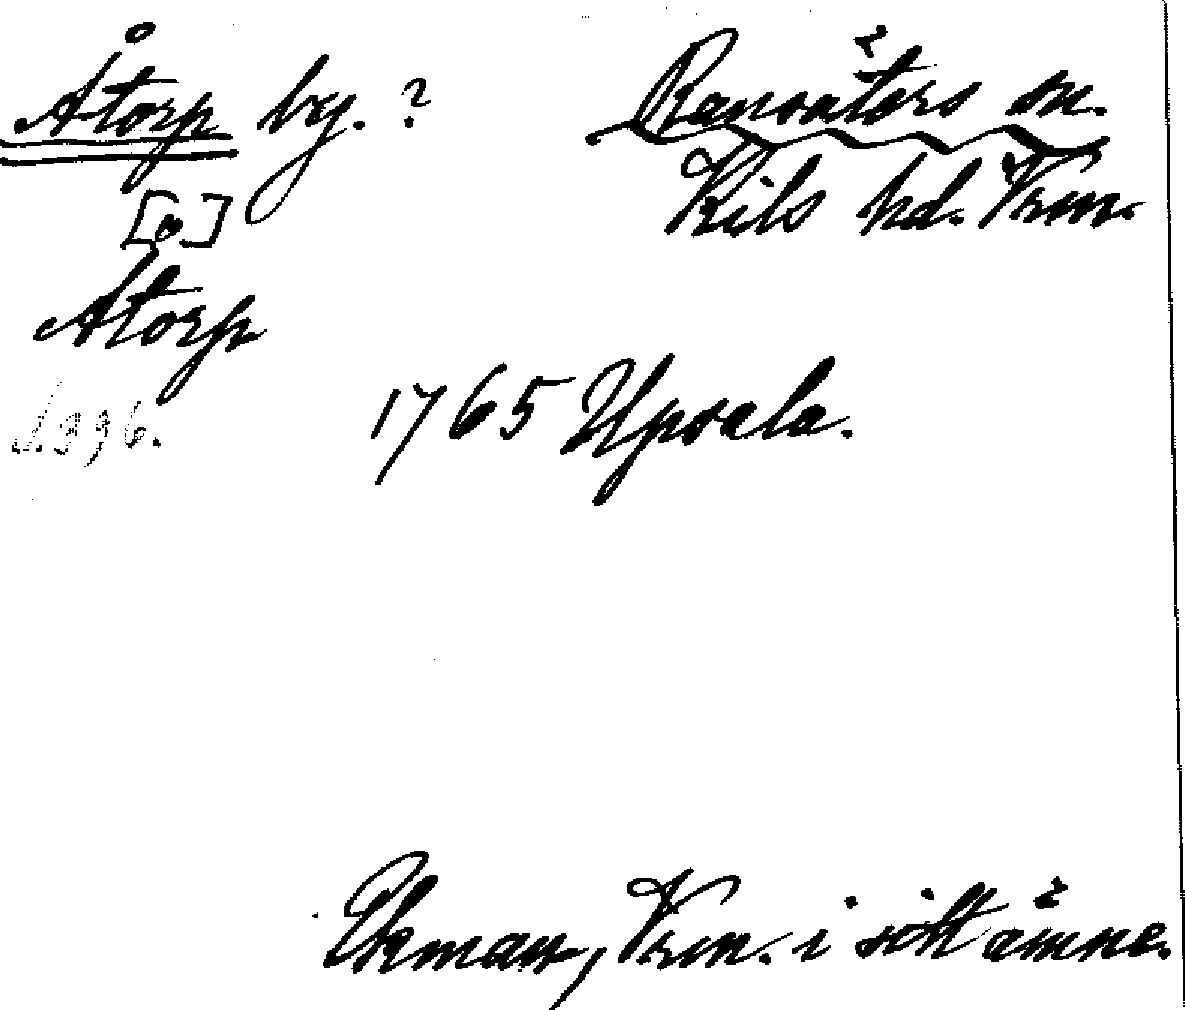 Åtorp by. ?
Ransäters sn.
Kils hd. Vrm.
[o]
Åtorp
S. 996.
1765 Upsala.
Ekman, Vrm. i sitt ämne.